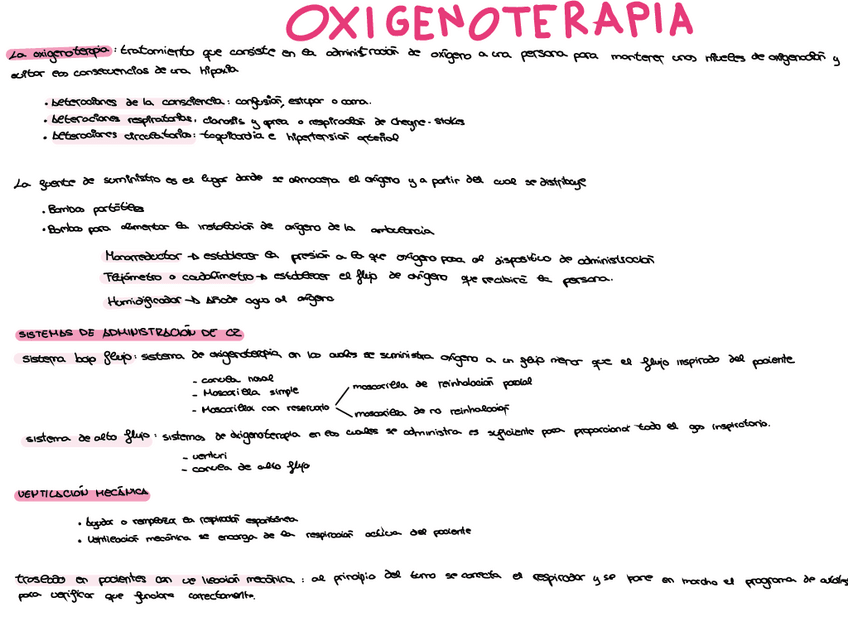 OXIGENOTERAPIA
La oxigenoterapia: tratamiento que consiste en la administración de oxígeno a una persona para mantener unos niveles de oxigenación y
evitar las consecuencias de una hipoxia
• Alteraciones de la consciencia: confusión, estupor o coma.
• Alteraciones respiratorias: cianosis y apnea o respiración de Cheyne-Stokes
• Alteraciones circulatorias: taquicardia e hipertensión arterial
La fuente de suministro es el lugar donde se almacena el oxígeno y a partir del cual se distribuye
• Bombas portátiles
• Bombas para alimentar la instalación de oxígeno de la ambulancia
Manorreductor → establecer la presión a la que oxígeno pasa al dispositivo de administración
Flujómetro o caudalímetro → establecer el flujo de oxígeno que recibirá la persona.
Humidificador → Añade agua al oxígeno
SISTEMAS DE ADMINISTRACIÓN DE O2
Sistema bajo flujo: sistema de oxigenoterapia en los cuales se suministra oxígeno a un flujo menor que el flujo inspirado del paciente
- canula nasal
- Mascarilla simple
- Mascarilla con reservorio
mascarilla de reinhalación parcial
mascarilla de no reinhalación
sistema de alto flujo: sistemas de oxigenoterapia en los cuales se administra es suficiente para proporcionar todo el gas inspiratorio.
- venturi
- canula de alto flujo
VENTILACIÓN MECÁNICA
• Ayudar o remplazar la respiración espontánea
• Ventilación mecánica se encarga de la respiración activa del paciente
traslado en pacientes con ventilación mecánica: al principio del turno se conecta el respirador y se pone en marcha el programa de
para verificar que funciona correctamente.